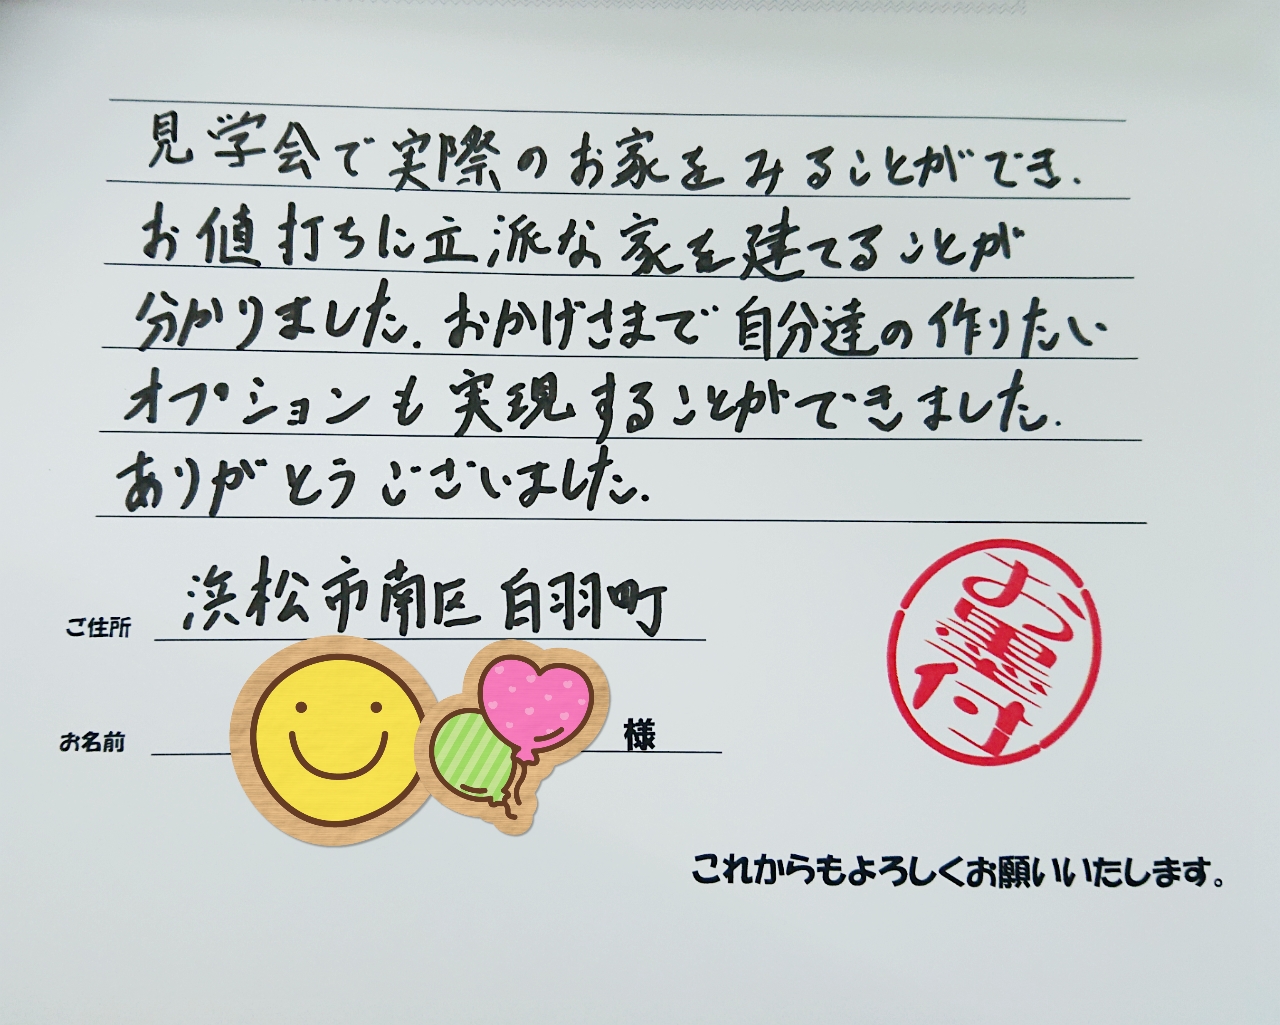 見学会で実際のお家をみることができ.
お値打ちに立派な家を建てることが
分かりました.おかげさまで自分達の作りたい
オプションも実現することができました.
ありがとうございました.
ご住所 浜松市南区白羽町
お名前 様
お墨付
これからもよろしくお願いいたします。